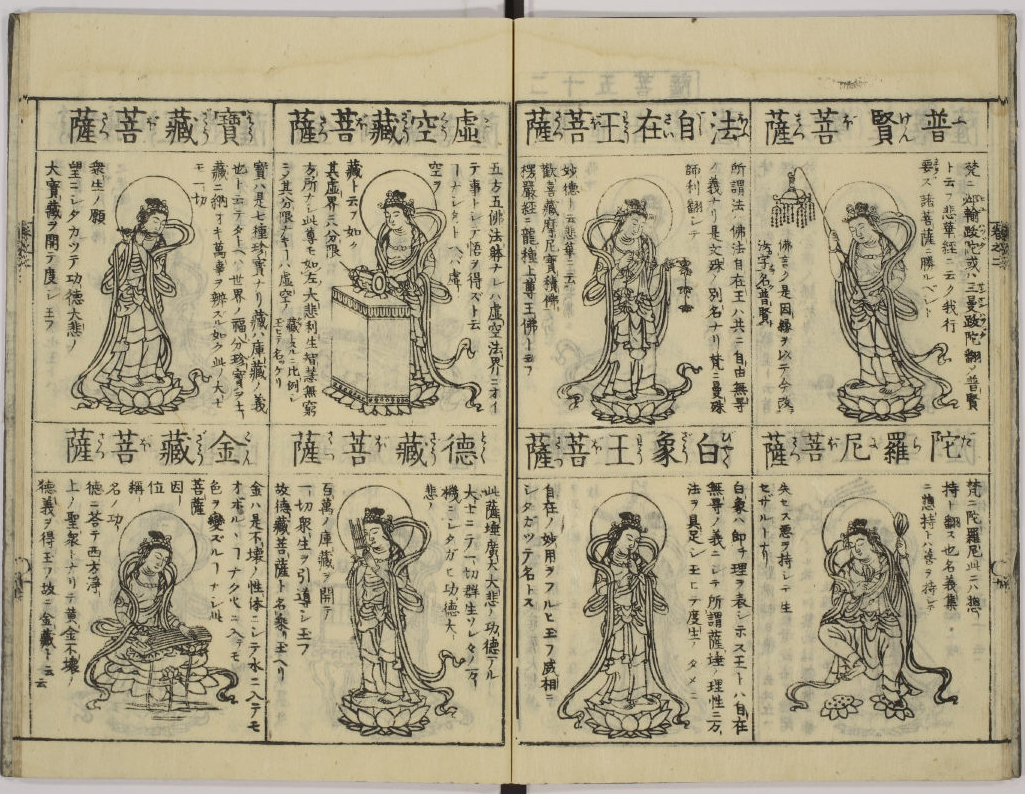 普賢菩薩
ト云フ悲華經ニ云ク我行
要ス諸菩薩ニ勝ルベシト
佛言ク是因縁ヲ以テ今改
汝字名普賢
法自在王菩薩
所謂法ハ佛法自在王ハ共ニ自由無㝵
ノ義ナリ是文殊ノ別名ナリ梵ニ曼珠
師利翻シテ
妙德ト云悲華ニ云
歡喜藏摩尼寶積佛
楞嚴經ニ龍種上尊王佛ト云フ
陀羅尼菩薩
梵ニ陀羅尼此ニハ摠
持ト翻ス也名義集
ニ摠持トハ善ヲ持シテ
失セス悪ヲ持シテ生
セサルナリ
白象王菩薩
白象ハ即チ理ヲ表シホス王トハ自在
無㝵ノ義ニシテ所謂薩埵ノ理性ニ万
法ヲ具足シ玉ヒテ度生ノタメニ
自在ノ妙用ヲフルヒ玉フ威相ニ
シタガツテ名トス
虚空藏菩薩
五方五佛法躰ナレハ虚空法界ニオイ
テ事トシテ悟ヲ得ズト云
フナシタトヘハ虚
空ヲ
藏ト云フ如ク
其虚界ニ分限
方所ナシ此尊モ如左大悲利生智慧無窮
ニテ其分限ナキフ虚空ノ
寶藏菩薩
寶ハ是七種珍寶ナリ藏ハ庫藏ノ義
也ト云テタトヘハ世界ノ福分珍寶ヲ
藏ニ納オキ萬事ヲ辨スル如ク此ノ大士
モ一切
衆生ノ願
望ニシタカツテ功德大悲ノ
大寶藏ヲ開テ度シ玉フ
德藏菩薩
此薩埵廣大大悲ノ功德アル
大士ニテ一切群生ソレ々ノ
機ニシタガヒ功德大
悲ノ
百萬ノ庫藏ヲ開テ
一切衆生ヲ引導シ玉フ
故德藏菩薩ト名奉リ玉ヘリ
金藏菩薩
金ハ是不壊ノ性体ニシテ水ニ入テモ
オボルヽフナク火ニ入テモ
色ヲ變ズルフナシ此
菩薩
因
位
稱
名ノ功
德ニ答テ西方浄
上ノ聖衆トナリテ黄金不壊ノ
德義ヲ得玉フ故ニ金藏ト云云